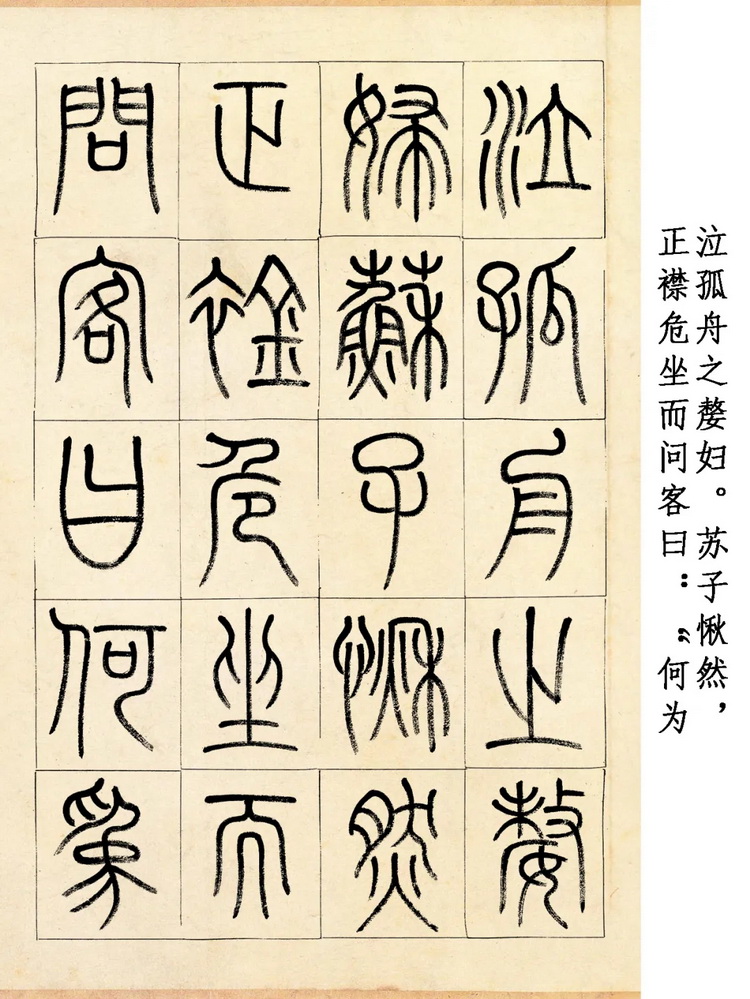 泣孤舟之嫠
婦蘇子愀然
正襟危坐而
問客曰何為
泣孤舟之嫠妇。苏子愀然，
正襟危坐而问客曰：“何为